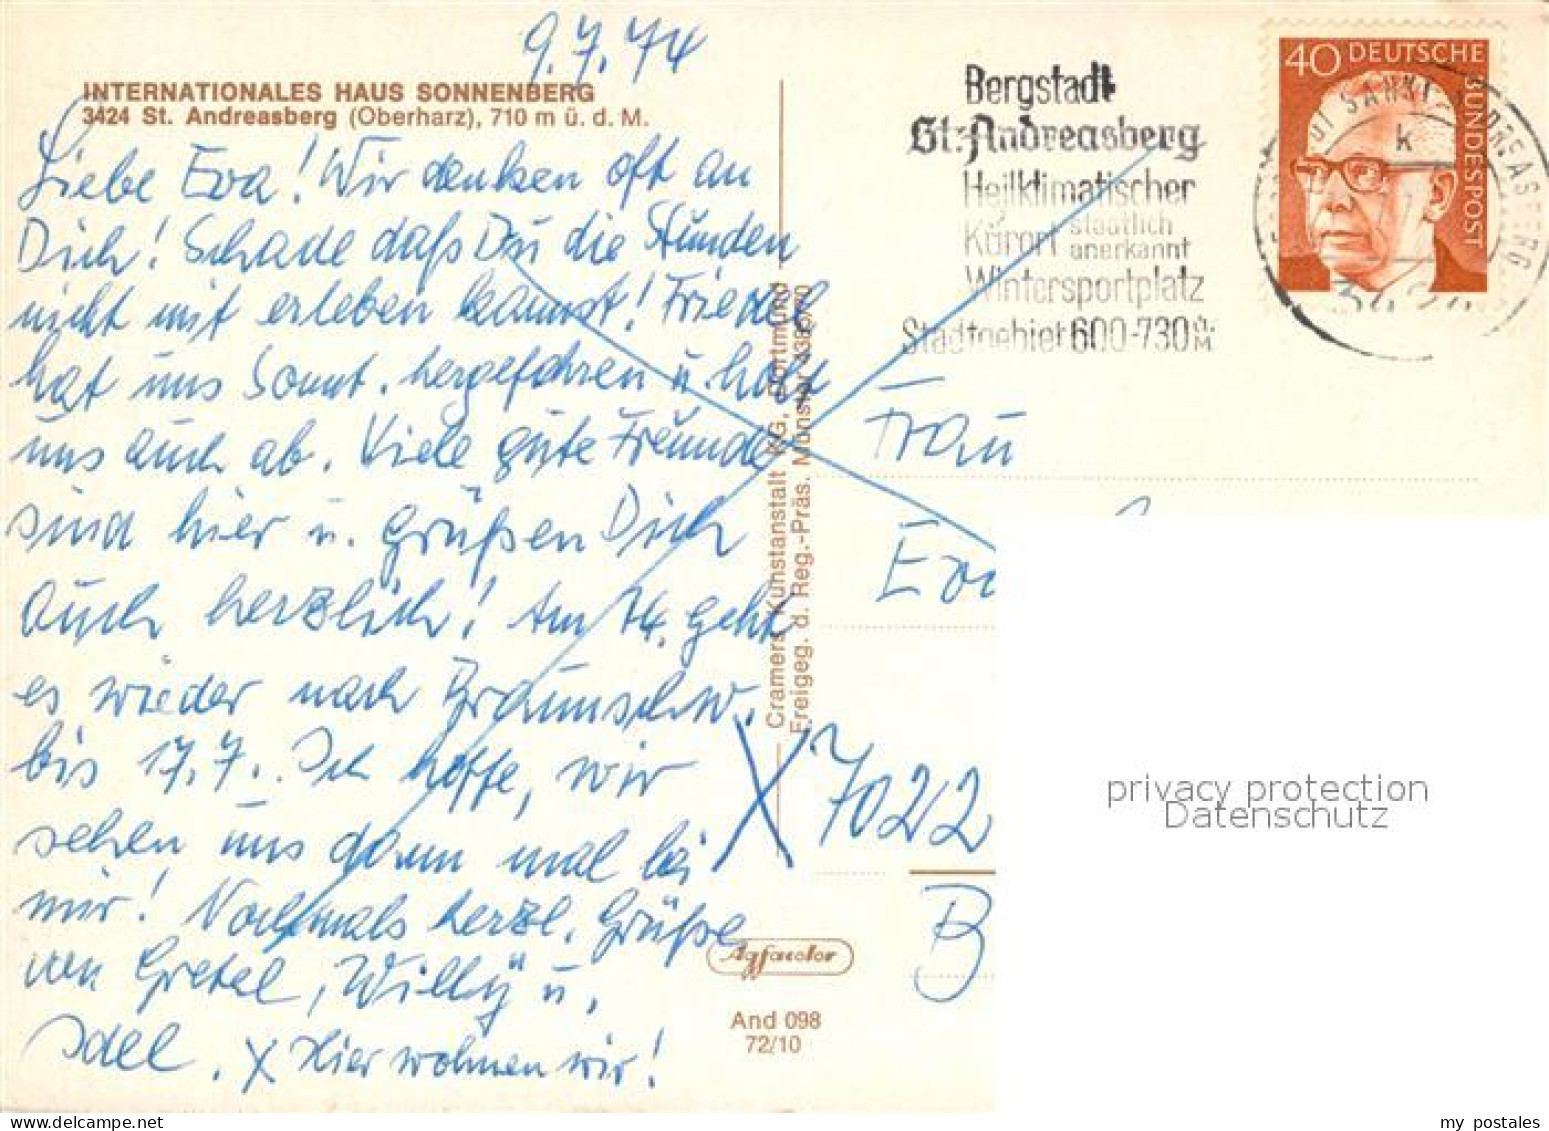 9.7.74
INTERNATIONALES HAUS SONNENBERG
3424 St. Andreasberg (Oberharz), 710 m ü. d. M.
Liebe Eva! Wir denken oft an
Dich! Schade daß Du die Stunden
nicht mit erleben kannst! Friedel
hat uns Sonnt. hergefahren u. holt
uns auch ab. Viele gute Freunde
sind hier u. grüßen Dich
auch herzlich! Am 14. geht
es wieder nach Braunschw.
bis 17.7.. Ich hoffe, wir
sehen uns dann mal bei
mir! Nochmals herzl. Grüße
von Gretel, Willy u.
Adel. X Hier wohnen wir!
Cramers Kunstanstalt KG, Dortmund
Freigeg. d. Reg.-Präs. Münster
Agfacolor
And 098
72/10
Bergstadt
St. Andreasberg
Heilklimatischer
Kurort staatlich
anerkannt
Wintersportplatz
Stadtgebiet 600-730 ü. M
40 DEUTSCHE
BUNDESPOST
SANKT ANDREASBERG
k
3424
Frau
X 7022
B
privacy protection
Datenschutz
my postales